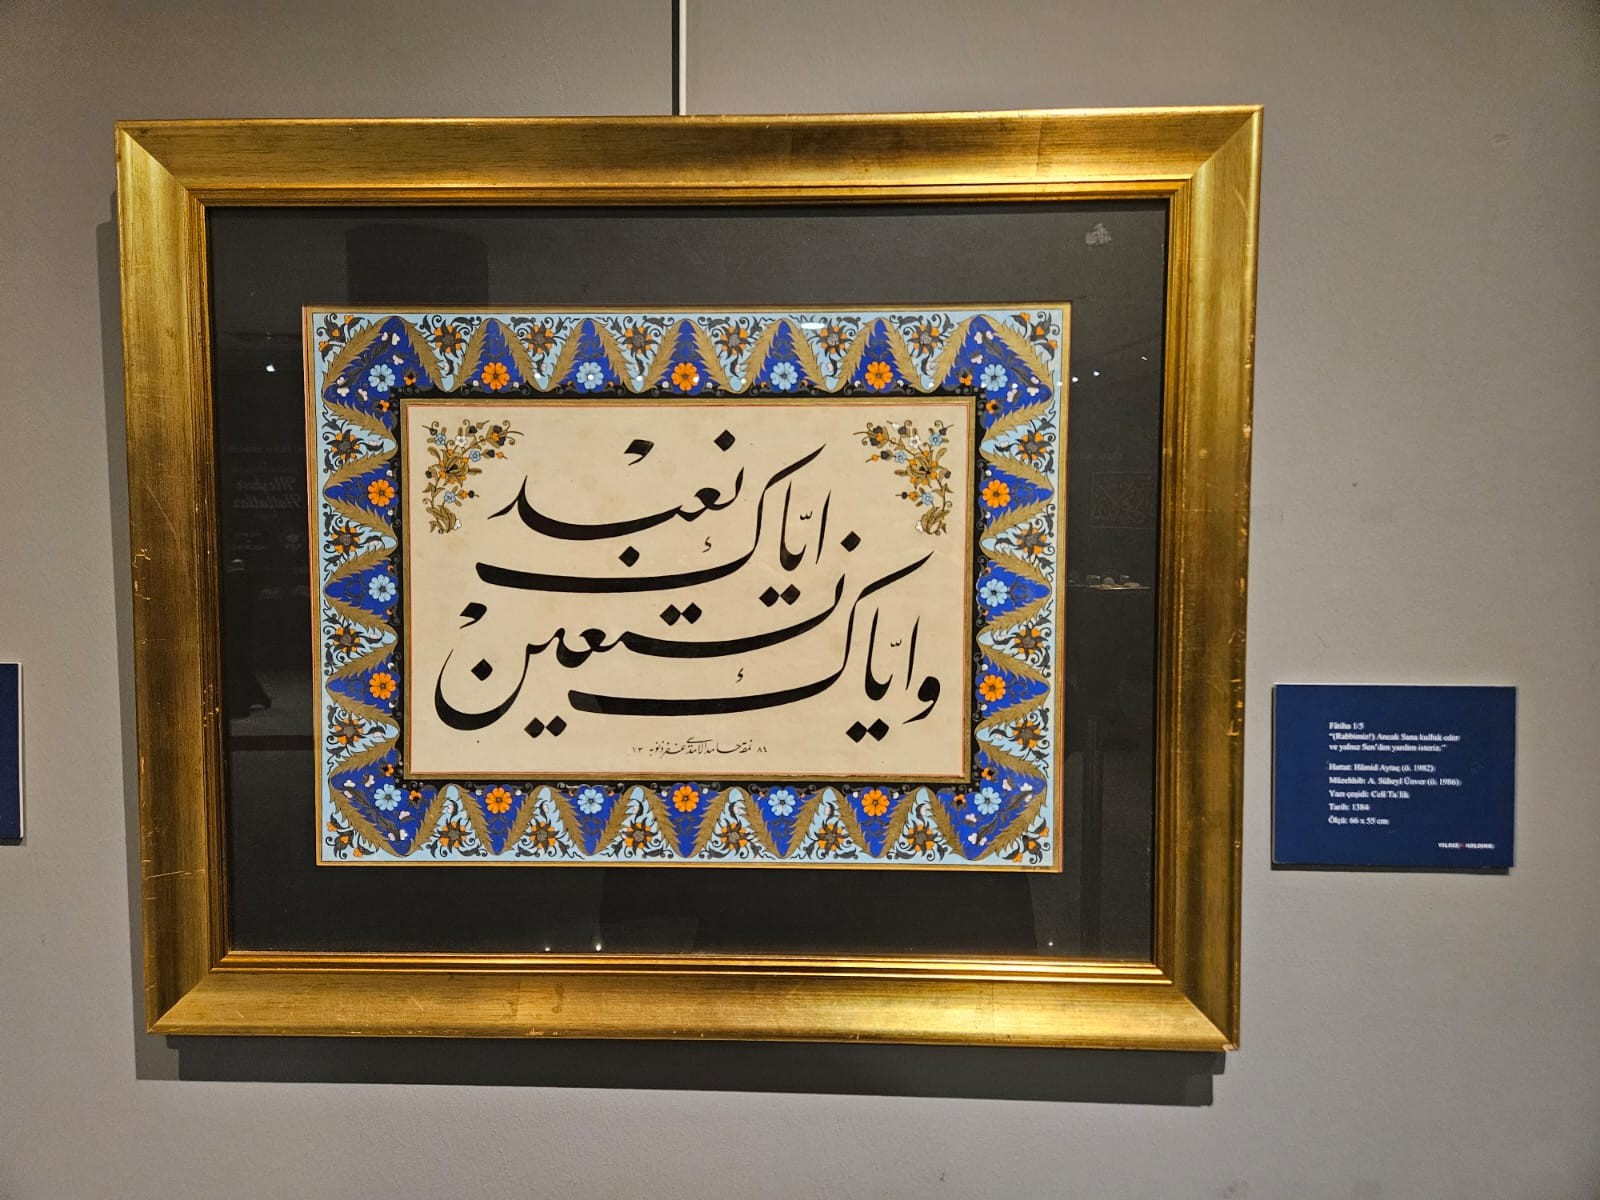 اياك نعبد
واياك نستعين
Fâtiha 1/5
"(Rabbimiz!) Ancak Sana kulluk eder
ve yalnız Sen'den yardım isteriz."
Hattat: Hâmid Aytaç (ö. 1982)
Müzehhib: A. Süheyl Ünver (ö. 1986)
Yazı çeşidi: Celî Ta'lik
Tarih: 1384
Ölçü: 66 x 55 cm
YILDIZ HOLDING